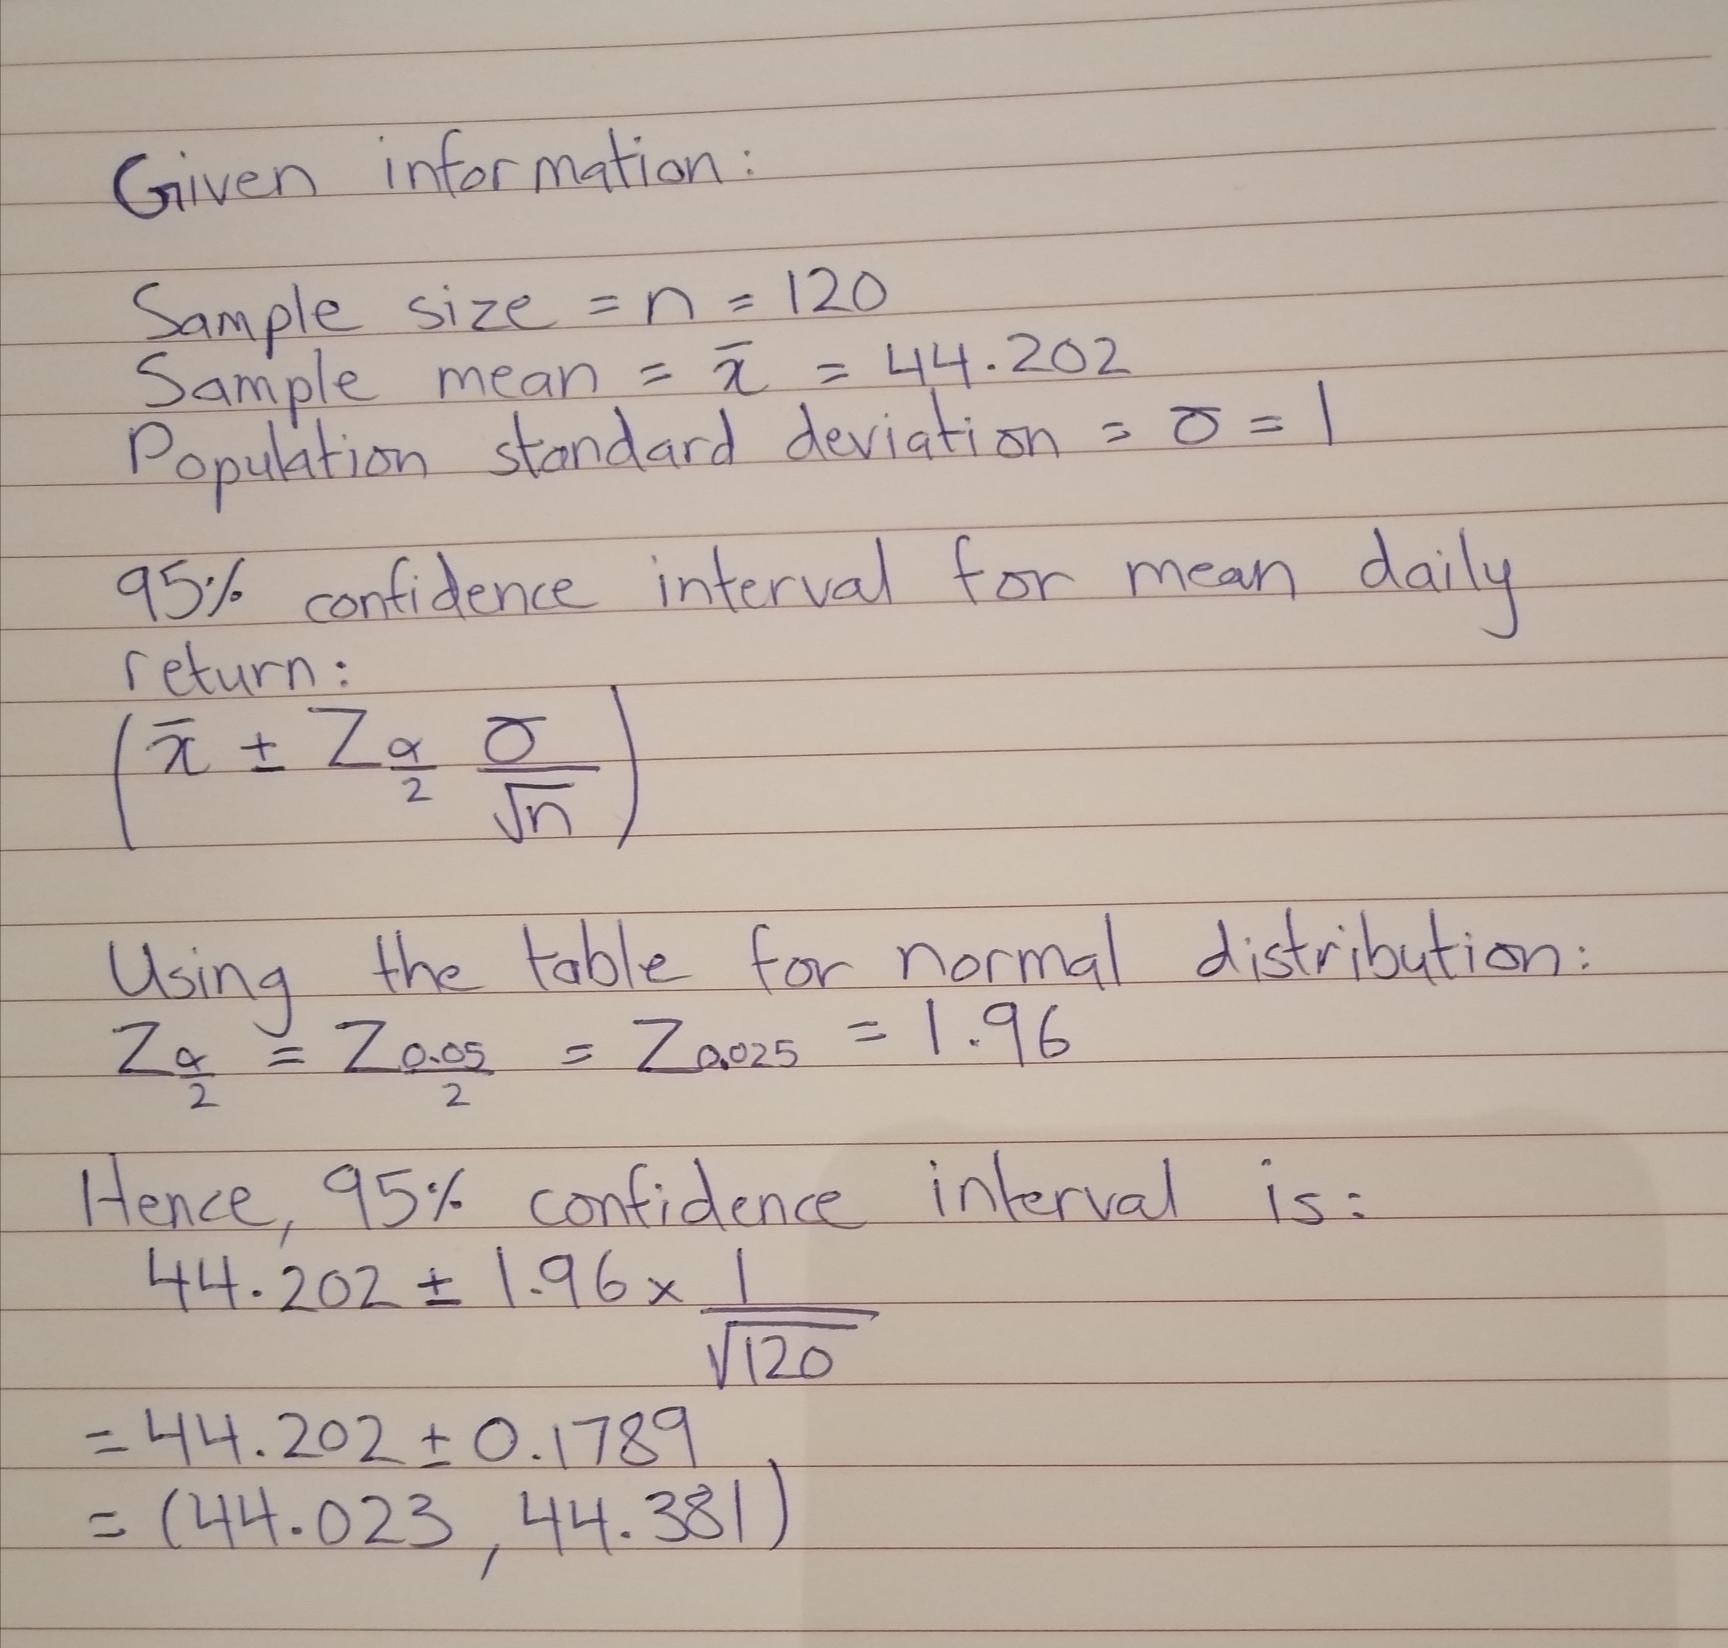 Given information:
Sample size = n = 120
Sample mean = x̄ = 44.202
Population standard deviation = σ = 1
95% confidence interval for mean daily
return:
(x̄ ± Z α/2 σ/√n)
Using the table for normal distribution:
Z α/2 = Z 0.05/2 = Z 0.025 = 1.96
Hence, 95% confidence interval is:
44.202 ± 1.96 × 1/√120
= 44.202 ± 0.1789
= (44.023, 44.381)